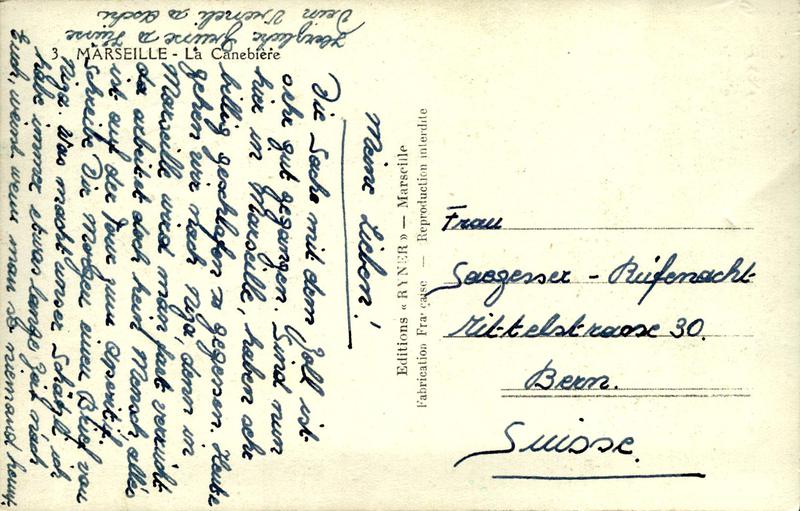 3. MARSEILLE - La Canebière
Meine Lieben!
Die Sache mit dem Zoll ist
sehr gut gegangen. Sind nun
hier in Marseille, haben sehr
billig geschlafen & gegessen. Heute
gehen wir nach Niza, denn in
Marseille wird man fast verrückt
da arbeitet doch kein Mensch, alles
ist auf der Tour zum Aperitif.
Schreibe Dir morgen einen Brief von
Niza. Was macht unser Schätzli ich
habe immer etwas lange Zeit nach
Euch, weint wenn man so niemand kennt.
Herzliche Grüsse & Küsse
Dein Vreneli &
Editions « RYNER » — Marseille
Fabrication Française — Reproduction interdite
Frau
Saegesser - Rüfenacht
Mittelstrasse 30.
Bern.
Suisse.